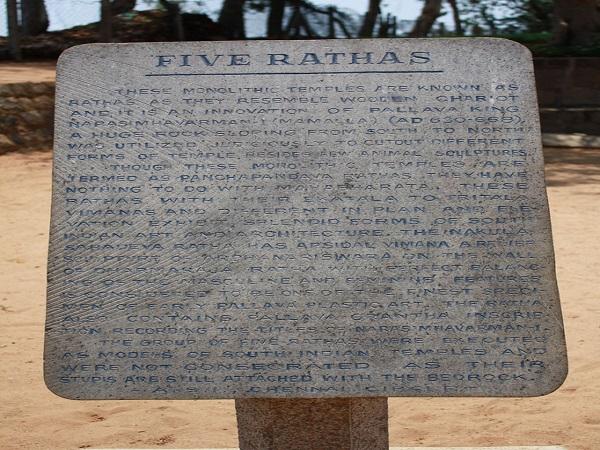 FIVE RATHAS
THESE MONOLITHIC TEMPLES ARE KNOWN AS
RATHAS AS THEY RESEMBLE WOODEN CHARIOT
AND IT IS AN INNOVATION OF PALLAVA KING
(MAMALLA) (AD 630-668).
A HUGE ROCK SLOPING FROM SOUTH TO NORTH
WAS UTILIZED TO CUTOUT DIFFERENT
FORMS OF TEMPLE BESIDES FEW ANIMAL SCULPTURES.
THOUGH THESE MONOLITHIC TEMPLES ARE
TERMED AS PANCHAPANDAVA RATHAS THEY HAVE
NOTHING TO DO WITH MAHABHARATA. THESE
RATHAS WITH THEIR EKATALA TO TRITALA
VIMANAS AND DIFFERENT IN PLAN AND ELE-
VATION EXHIBIT SPLENDID FORMS OF SOUTH
INDIAN ART AND ARCHITECTURE. THE NAKULA
SAHADEVA RATHA HAS APSIDAL VIMANA
SCULPTURE OF ON THE WALL
OF DHARMARAJA RATHA WITH PERFECT BALANC-
ING OF THE MASCULINE AND FEMININE FEATURES
ONE OF THE FINEST SPECI-
MEN OF EARLY PALLAVA PLASTIC ART. THE RATHA
ALSO CONTAINS PALLAVA GRANTHA INSCRIP-
TION RECORDING THE TITLES OF
THE GROUP OF FIVE RATHAS WERE EXECUTED
AS MODELS OF SOUTH INDIAN TEMPLES AND
WERE NOT CONSECRATED AS THEIR
STUPIS ARE STILL ATTACHED WITH THE BEDROCK.
A.S.I. CHENNAI CIRCLE